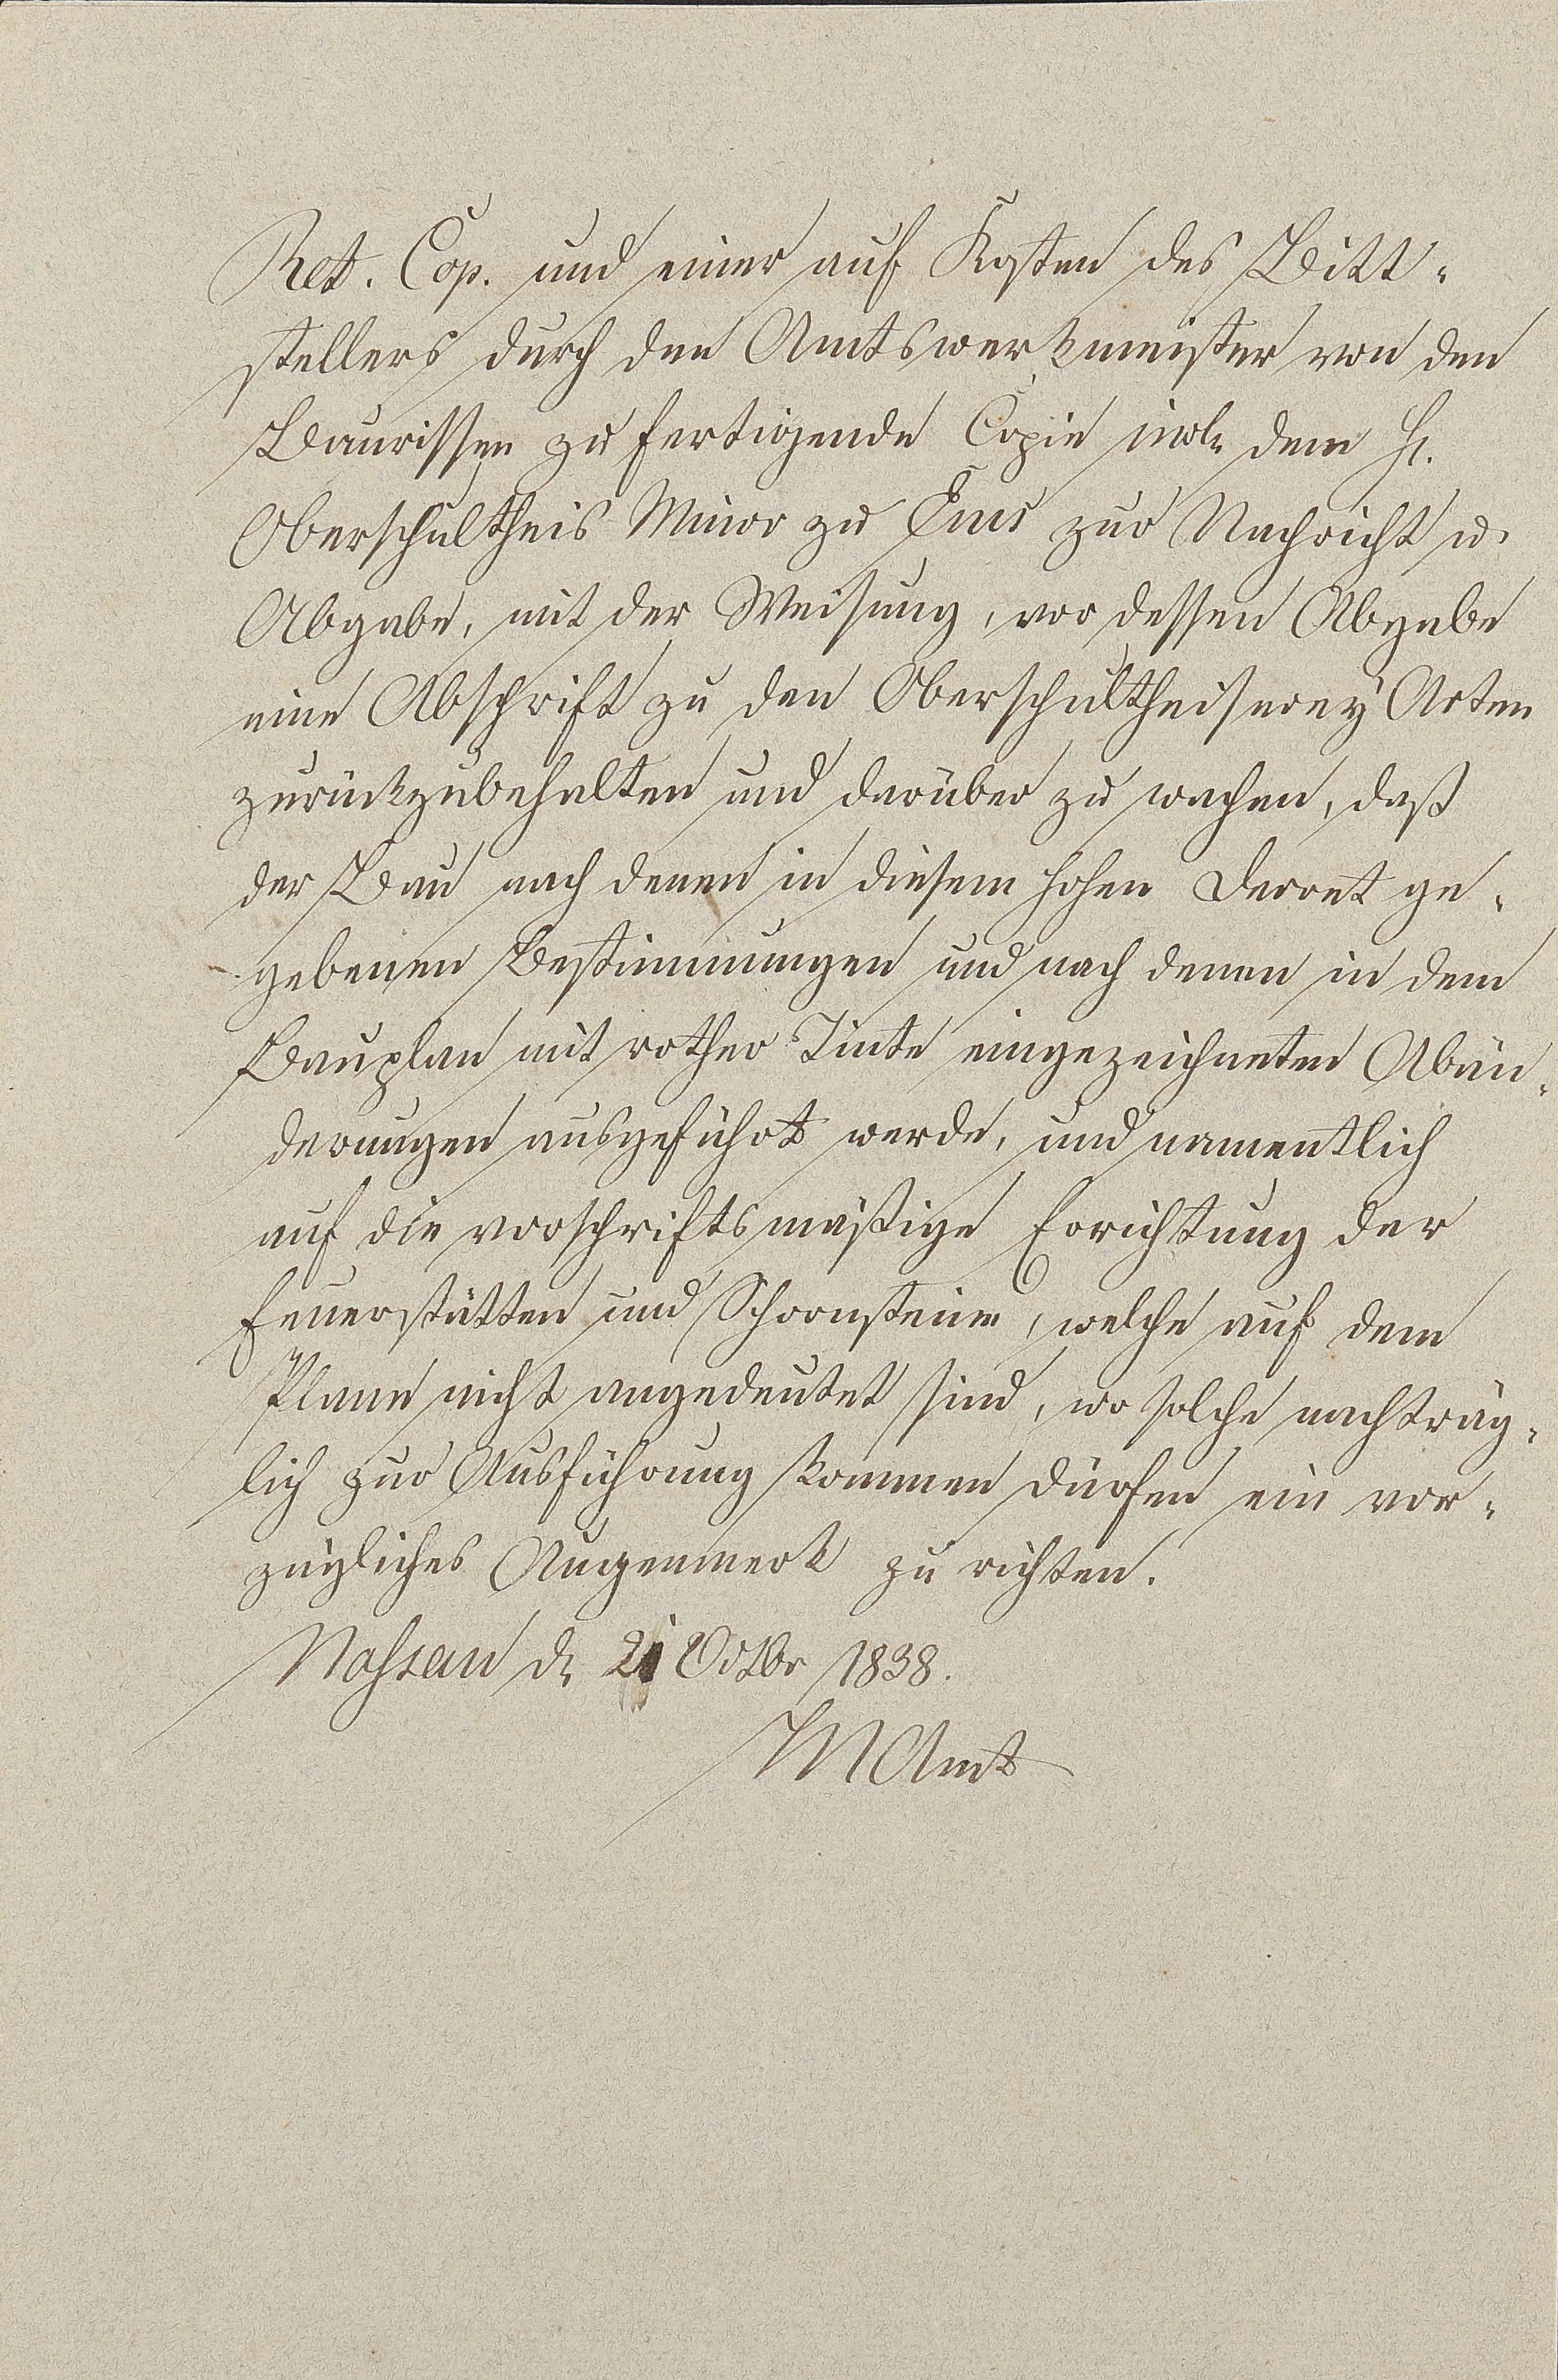 Ret. Cop. und einer auf Kosten des Bitt-
stellers durch den Amtswerkmeister von den
Baurissen zu fertigende Copie incl. dem H.
Oberschultheis Minor zu Ems zur Nachricht u.
Abgabe, mit der Weisung, vor dessen Abgabe
eine Abschrift zu den Oberschultheiserey Acten
zurückzubehalten und darüber zu wachen, daß
der Bau nach denen in diesem hohen Decret ge-
gebenen Bestimmungen und nach denen in dem
Bauplan mit rother Tinte eingezeichneten Abän-
derungen ausgeführt werde, und namentlich
auf die vorschriftsmäßige Errichtung der
Feuerstätten und Schornsteine, welche auf dem
Plane nicht angedeutet sind, wo solche nachträg-
lich zur Ausführung kommen dürfen ein vor-
zügliches Augenmerk zu richten.
Nassau d. 21 Octbr 1838.
Amt